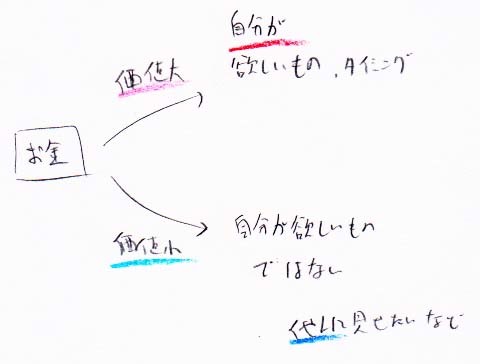 自分が
欲しいもの、タイミング
価値大
お金
価値小
自分が欲しいもの
ではない
他人に見せたいなど